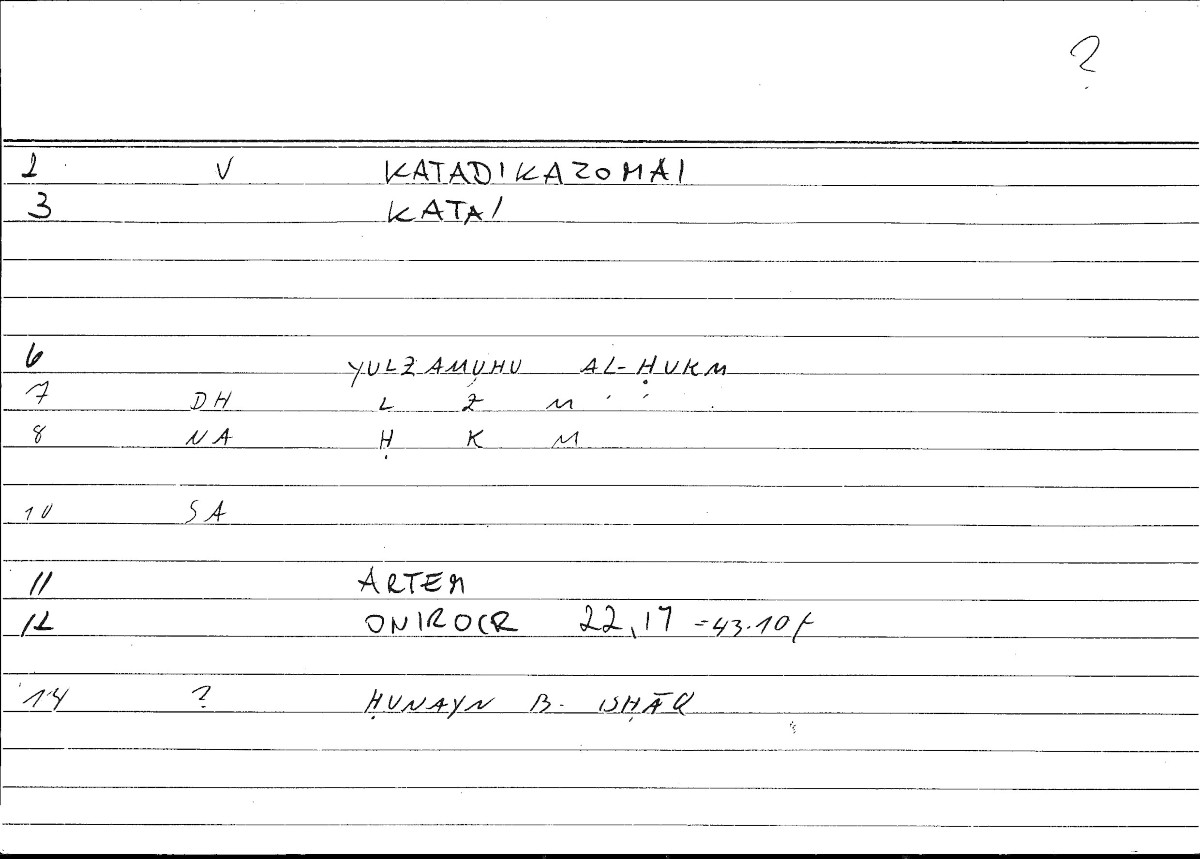 ?
1 V KATADIKAZOMAI
3 KATAI
6 YULZAMUHU AL-ḤUKM
7 DH L Z M
8 NA Ḥ K M
10 SA
11 ARTEM
12 ONIROCR 22,17 =43.10f
14 ? ḤUNAYN B. ISḤĀQ